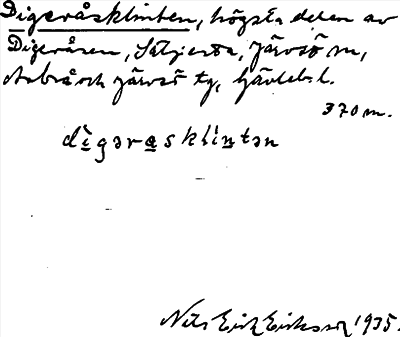 Digeråsklinten, högsta delen av
Digeråsen, Säljesta, Järvsö sn,
Arbrå och Järvsö tg, Gävleb. l.
370 m.
dìgərasklìntən
Nils Erik Eriksson 1935.